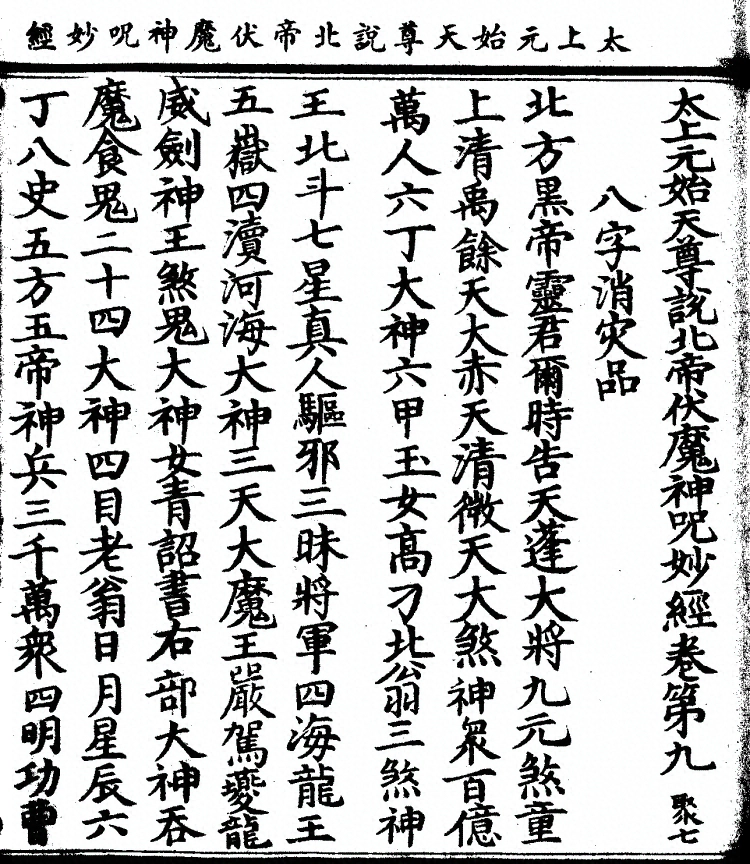 太上元始天尊說北帝伏魔神呪妙經
太上元始天尊說北帝伏魔神呪妙經卷第九 聚七
八字消灾品
北方黑帝靈君爾時告天蓬大將九元煞童
上清禹餘天大赤天清微天大煞神衆百億
萬人六丁大神六甲玉女髙刁北翁三煞神
王北斗七星真人驅邪三昧將軍四海龍王
五嶽四瀆河海大神三天大魔王嚴駕夔龍
威劍神王煞鬼大神女青詔書右部大神吞
魔食鬼二十四大神四目老翁日月星辰六
丁八史五方五帝神兵三千萬衆四明功曹